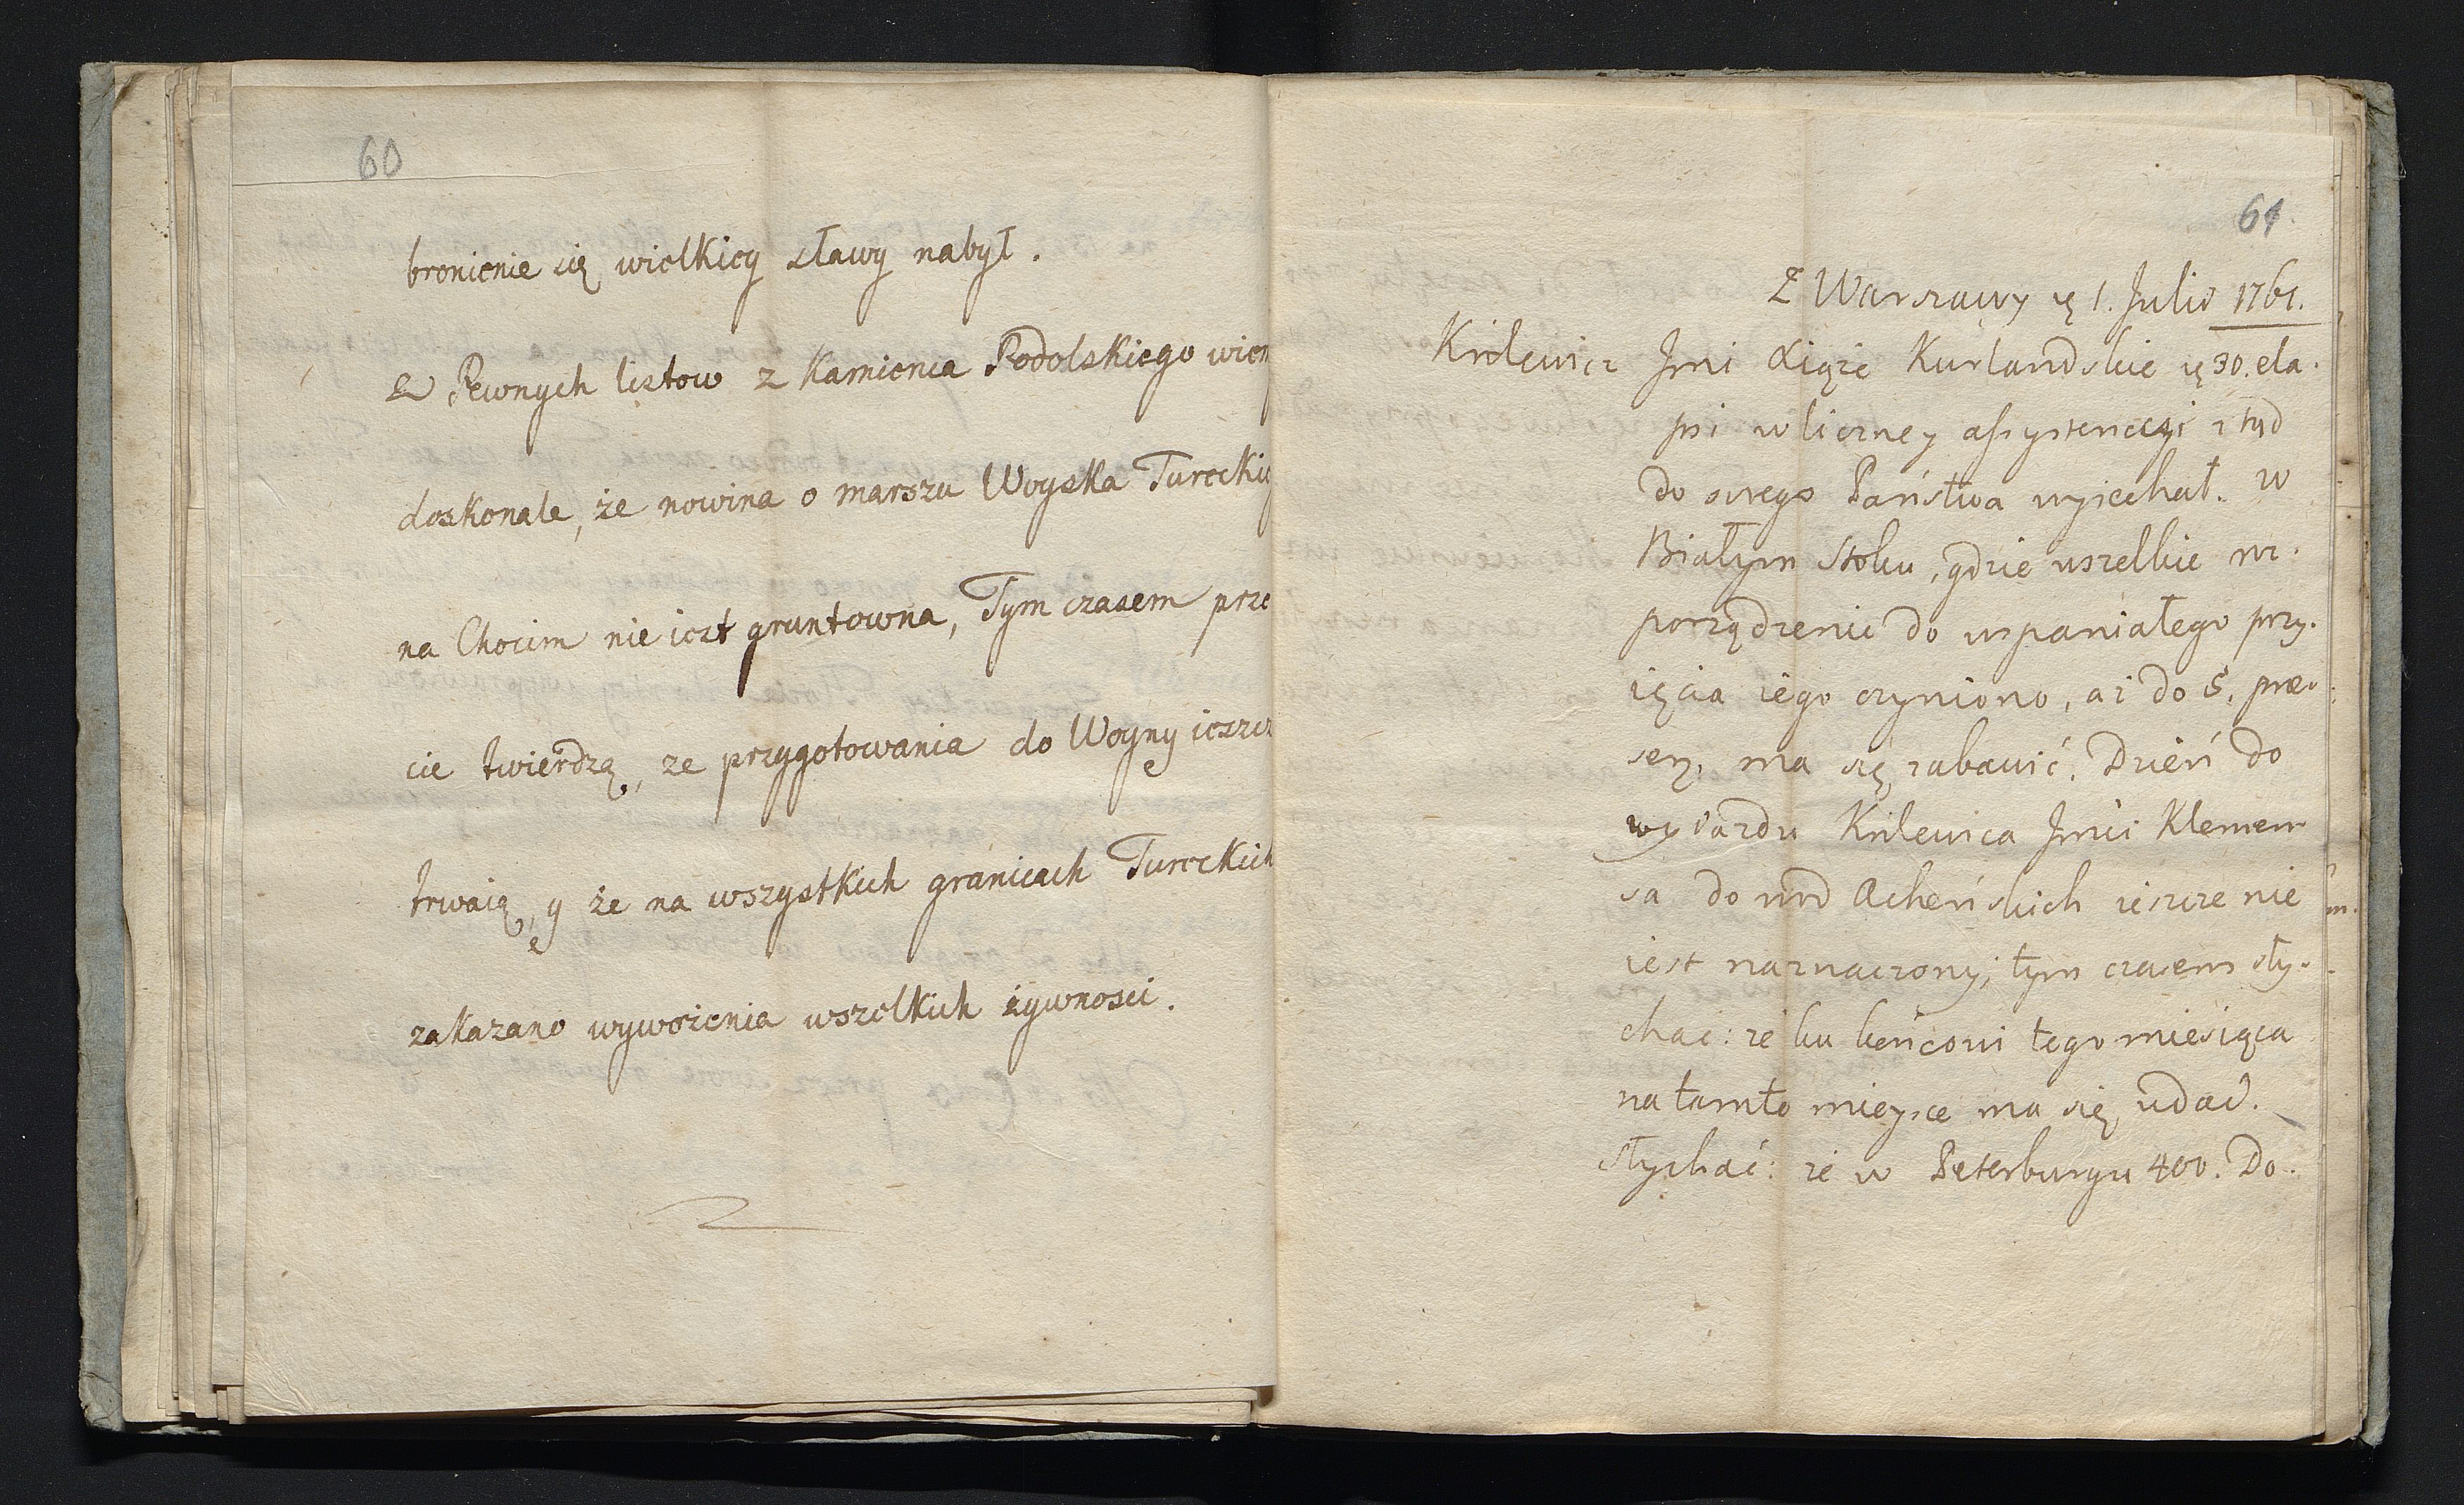 60
bronienie się wielkiey sławy nabył.
Z Pewnych listow z Kamienca Podolskiego wiem
doskonale, że nowina o marszu Woyska Tureckie
na Chocim nie iest gruntowna, Tym czasem prze
cie twierdzą, ze przygotowania do Woyny ieszcz
trwaią, y że na wszystkich granicach Tureckich
zakazano wywożenia wszelkich żywnosci.
61.
Z Warszawy 1. Julii 1761.
Królewicz Jmci Xiąże Kurlandskie 30. ela.
psi w liczney assystencyi ztąd
do swego Państwa wyiechał. w
Białym Stoku, gdzie wszelkie roz.
porządzenie do wspaniałego przy.
ięcia iego czyniono, aż do 5. præ.
sen. ma się zabawić. Dzień do
wyiazdu Królewica Jmci Klemen
sa do wod Acheńskich ieszcze nie
iest naznaczony; tym czasem sły.
chać: że ku końcowi tego miesiąca
na tamto mieysce ma się udać.
słychać: że w Peterburgu 400. Do.